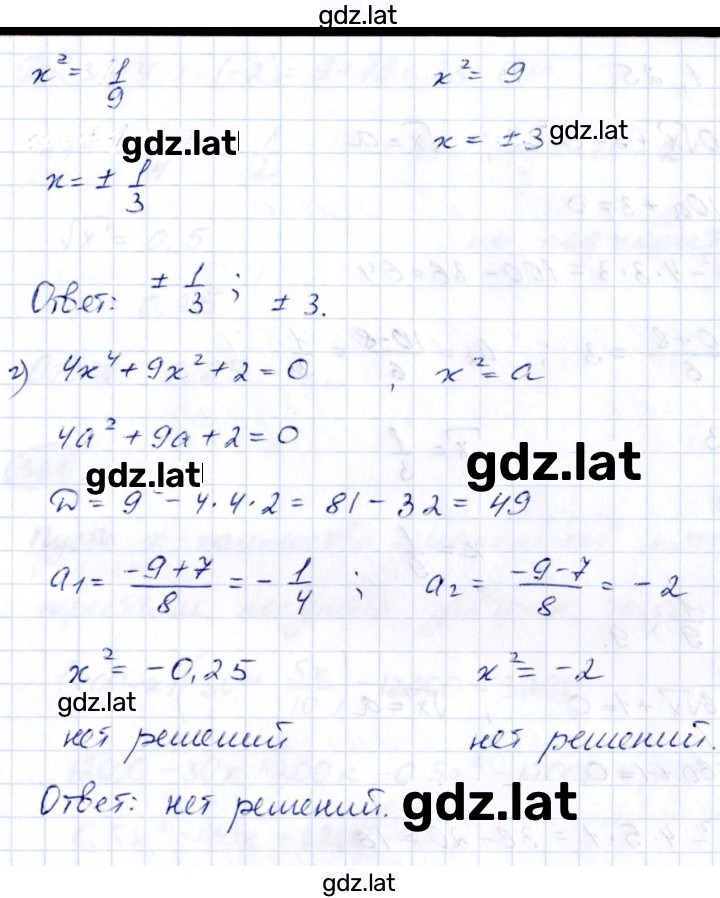 gdz.lat
x² = 1/9 x² = 9
gdz.lat x = ±3 gdz.lat
x = ± 1/3
Ответ: ± 1/3 ; ± 3.
г) 4x⁴ + 9x² + 2 = 0 , x² = a
4a² + 9a + 2 = 0
gdz.lat gdz.lat
D = 9² − 4·4·2 = 81 − 32 = 49
a₁ = (−9+7)/8 = − 1/4 ; a₂ = (−9−7)/8 = − 2
x² = −0,25 x² = −2
gdz.lat
нет решений нет решений.
Ответ: нет решений. gdz.lat
gdz.lat